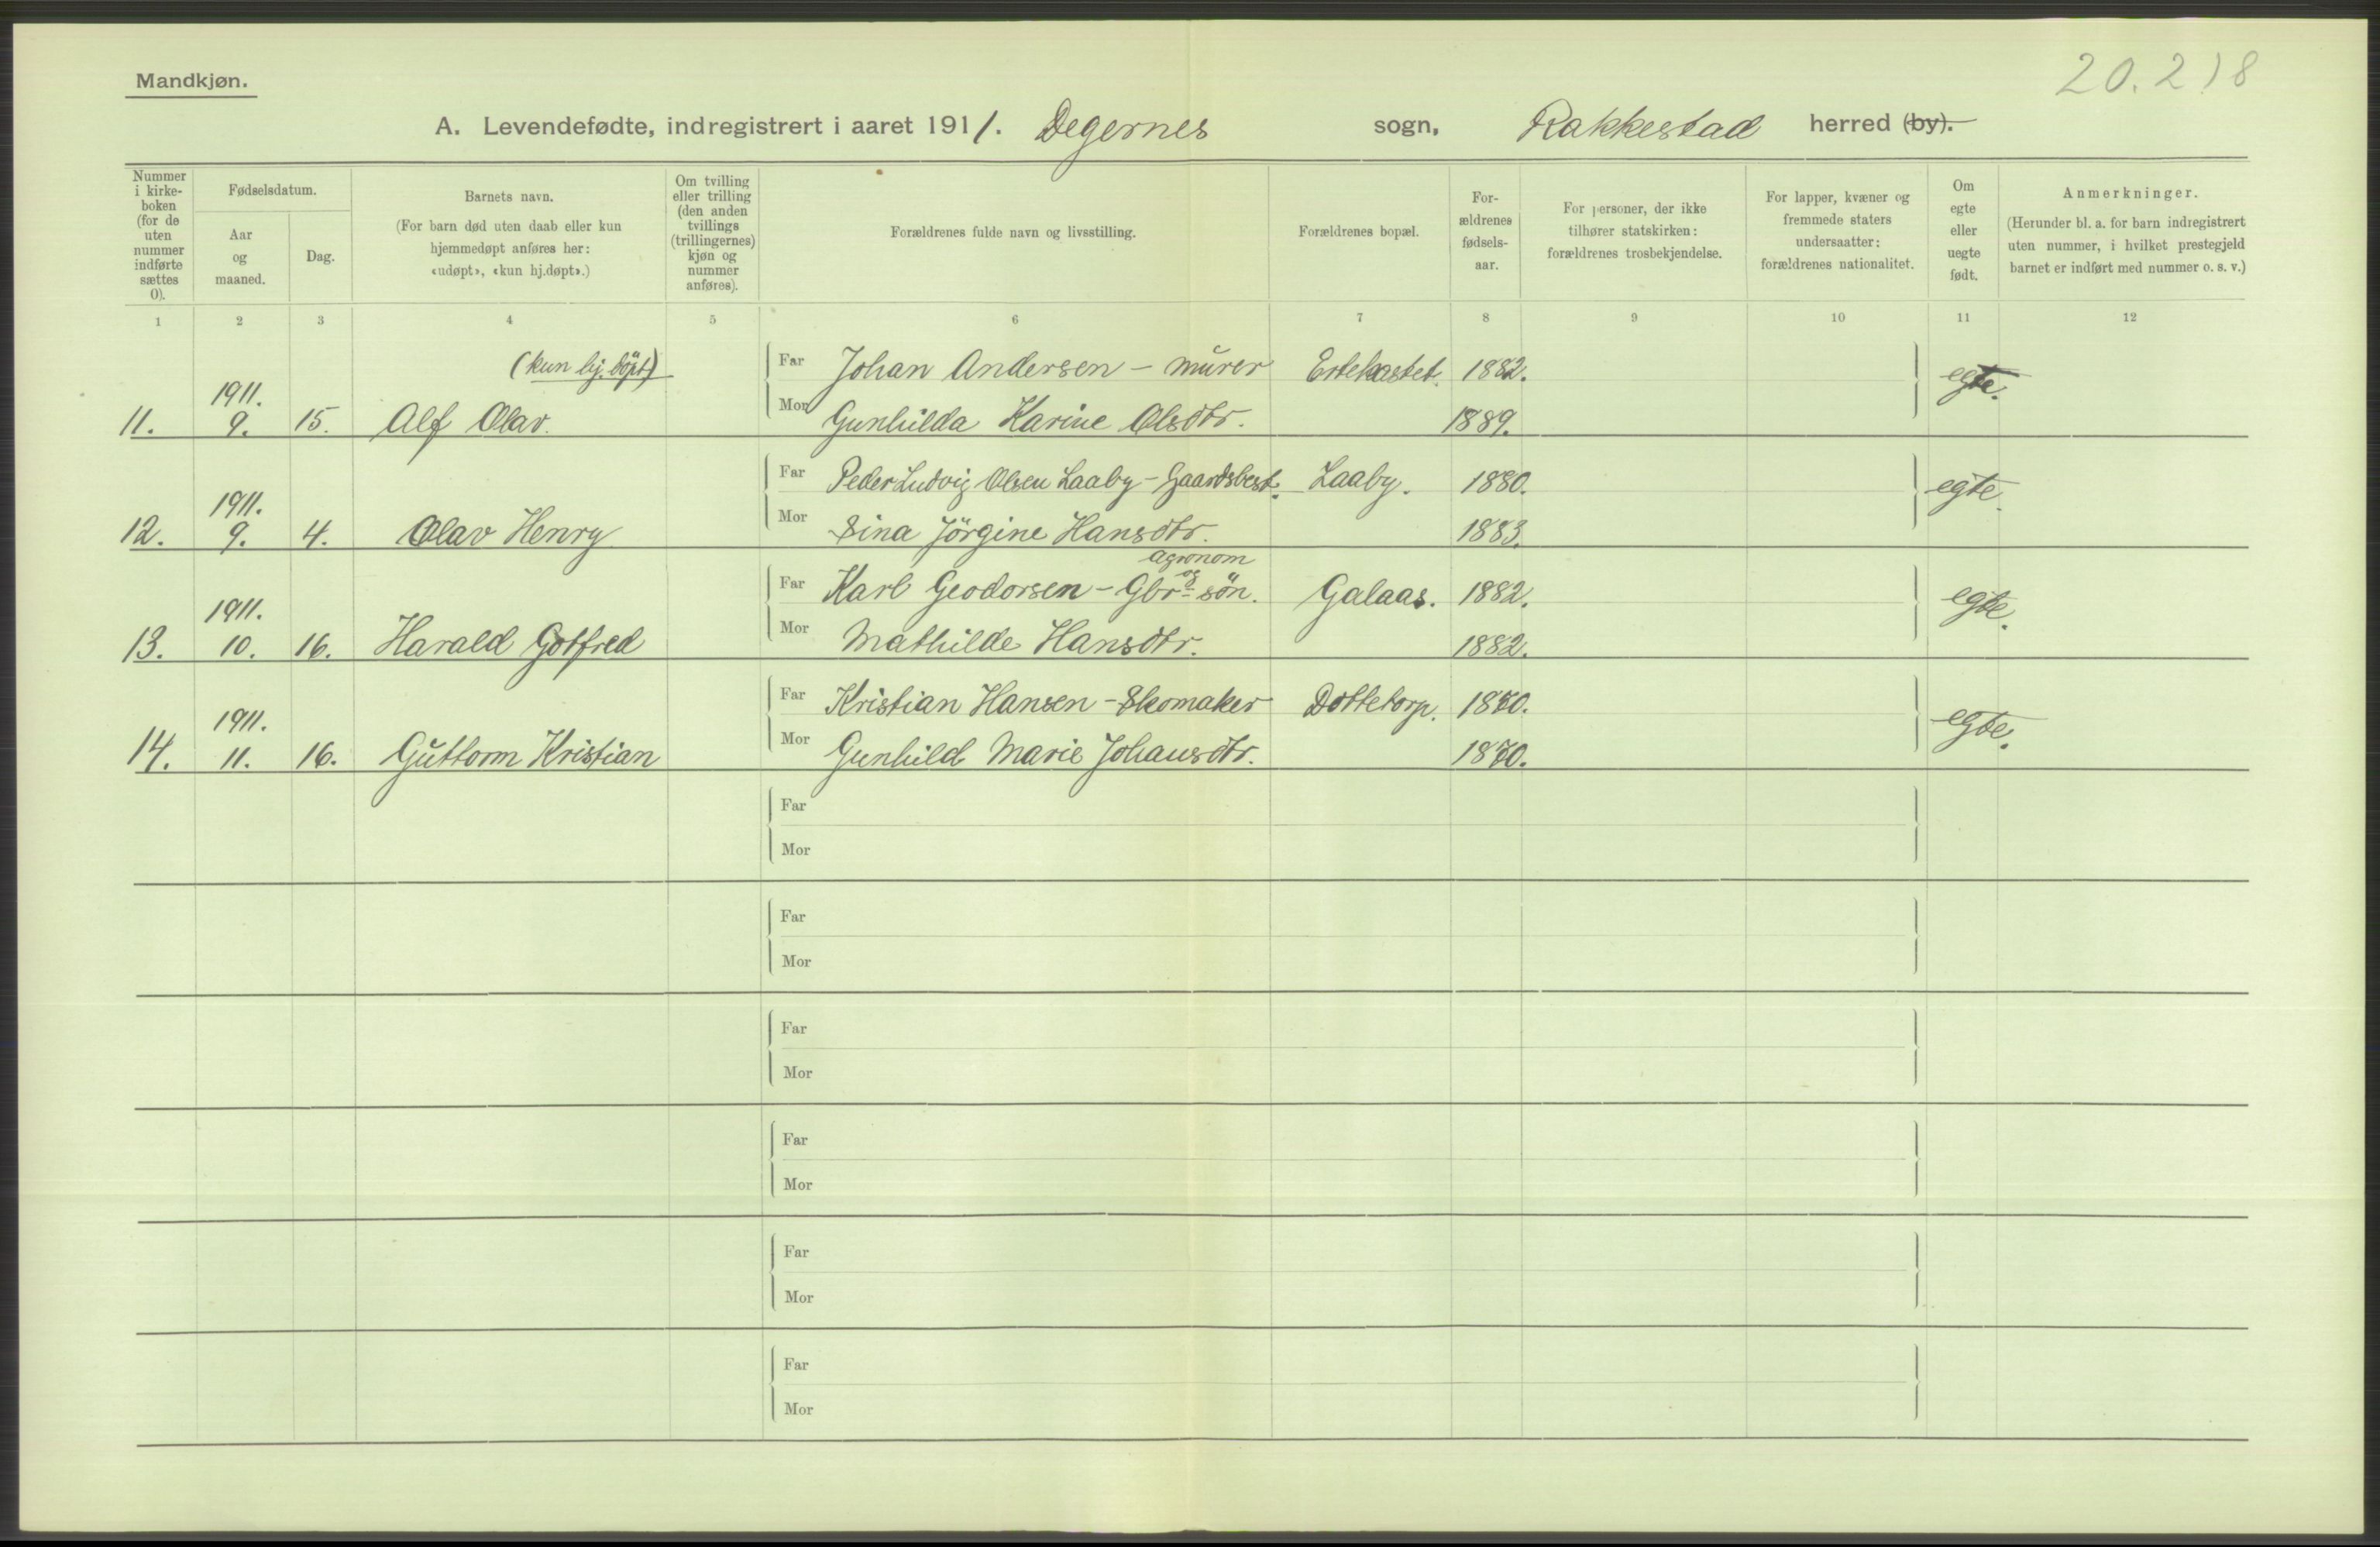 20.2.18
Mandkjøn.
A. Levendefødte, indregistrert i aaret 1911. Degernes sogn, Rakkestad herred (by).
Nummer i kirke-boken (for de uten nummer indførte sættes 0).
Fødselsdatum.
Aar og maaned.
Dag.
Barnets navn.
(For barn død uten daab eller kun hjemmedøpt anføres her: «udøpt», «kun hj.døpt».)
Om tvilling eller trilling (den anden tvillings (trillingernes) kjøn og nummer anføres).
Forældrenes fulde navn og livsstilling.
Forældrenes bopæl.
For-ældrenes fødsels-aar.
For personer, der ikke tilhører statskirken: forældrenes trosbekjendelse.
For lapper, kvæner og fremmede staters undersaatter: forældrenes nationalitet.
Om egte eller uegte født.
Anmerkninger.
(Herunder bl. a. for barn indregistrert uten nummer, i hvilket prestegjeld barnet er indført med nummer o. s. v.)
1 2 3 4 5 6 7 8 9 10 11 12
(kun hj. döpt) Far Johan Andersen – murer 1882. egte.
11. 1911. 9. 15. Alf Olav. Mor Gunhilda Karine Olsdtr. 1889.
Far Peder Ludvig Olsen Laaby – Gaardsbest. Laaby. 1880. egte.
12. 1911. 9. 4. Olav Henry Mor Sina Jörgine Hansdtr. 1883.
agronom
og
Far Karl Geodorsen – Gbr-sön. Galaas. 1882. egte.
13. 1911. 10. 16. Harald Gotfred Mor Mathilde Hansdtr. 1882.
Far Kristian Hansen – Skomaker Dottetorp. 1870. egte.
14. 1911. 11. 16. Guttorm Kristian Mor Gunhild Marie Johansdtr. 1870.
Far
Mor
Far
Mor
Far
Mor
Far
Mor
Far
Mor
Far
Mor